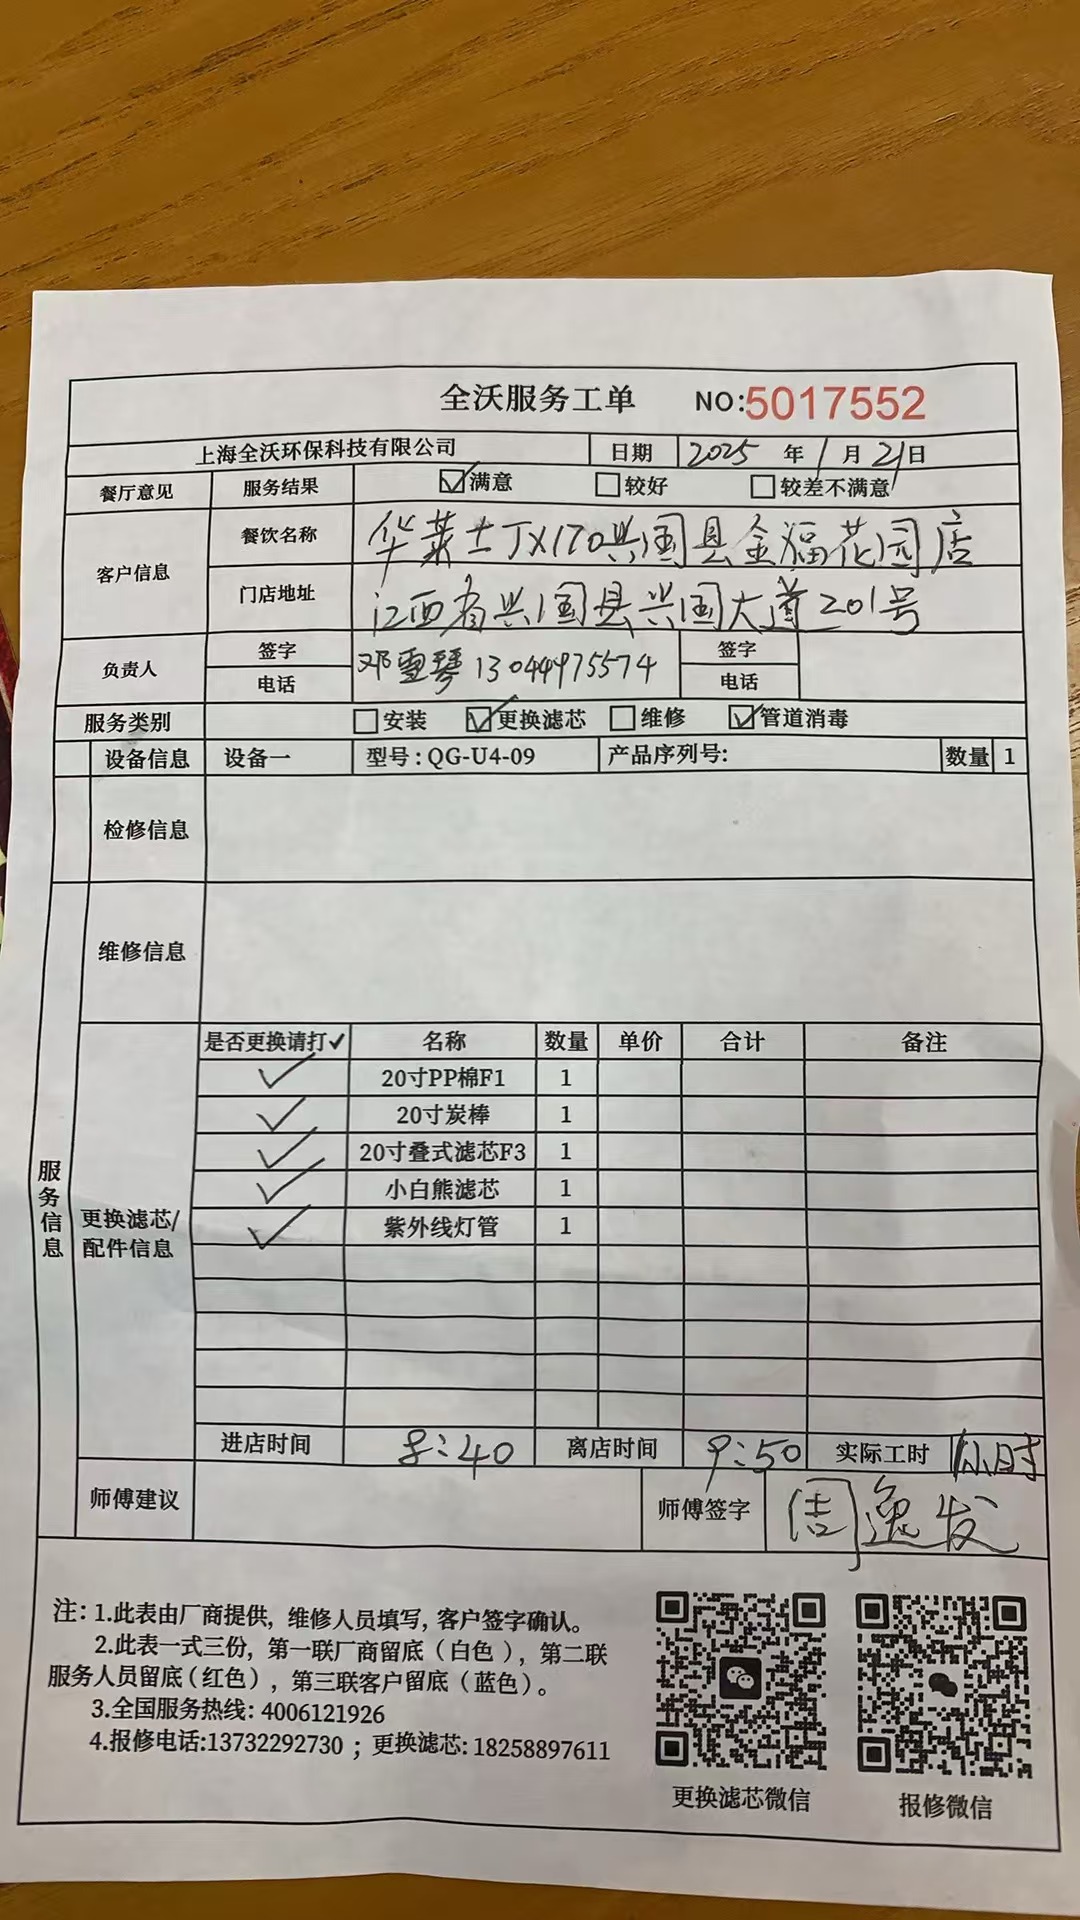 全沃服务工单 NO:5017552
上海全沃环保科技有限公司 日期 2025年1月21日
餐厅意见 服务结果 ☑满意 □较好 □较差不满意
客户信息 餐饮名称 华莱士JX170兴国县金福花园店
门店地址 江西省兴国县兴国大道201号
负责人 签字 电话 邓雪琴 13044975574 签字 电话
服务类别 □安装 ☑更换滤芯 □维修 ☑管道消毒
设备信息 设备一 型号:QG-U4-09 产品序列号: 数量 1
检修信息
维修信息
服务信息
更换滤芯/配件信息
是否更换请打✓ 名称 数量 单价 合计 备注
✓ 20寸PP棉F1 1
✓ 20寸炭棒 1
✓ 20寸叠式滤芯F3 1
✓ 小白熊滤芯 1
✓ 紫外线灯管 1
进店时间 8:40 离店时间 9:50 实际工时 1小时
师傅建议 师傅签字 周逸发
注: 1.此表由厂商提供, 维修人员填写, 客户签字确认。
2.此表一式三份, 第一联厂商留底（白色）, 第二联
服务人员留底(红色), 第三联客户留底（蓝色）。
3.全国服务热线: 4006121926
4.报修电话:13732292730 ; 更换滤芯: 18258897611
更换滤芯微信 报修微信